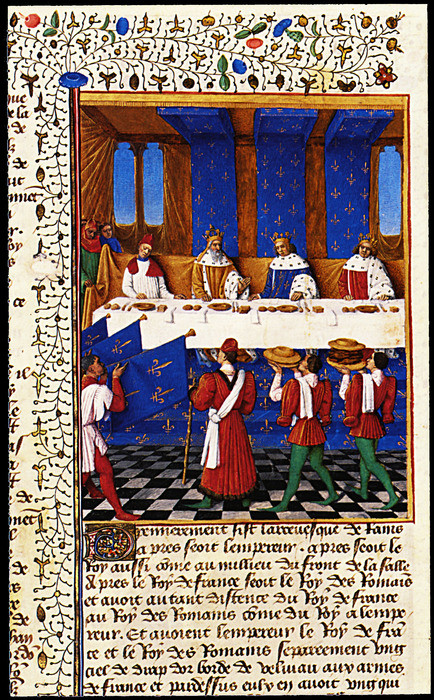 Premierement sist larcevesque de Rains
a pres seoit lempereur . a pres seoit le
Roy aussi cōme au millieu du front de la salle
& pres le Roy de france seoit le Roy des Romais
et avoit autant distence du Roy de france
au Roy des Romains cōme du Roy a lempe
reur. Et avoient lempereur le Roy de frā
ce et le Roy des Romains separeement ung
ciel de drap dor borde de veluau aux armes
de france et pardessus eulx en avoit ung qui